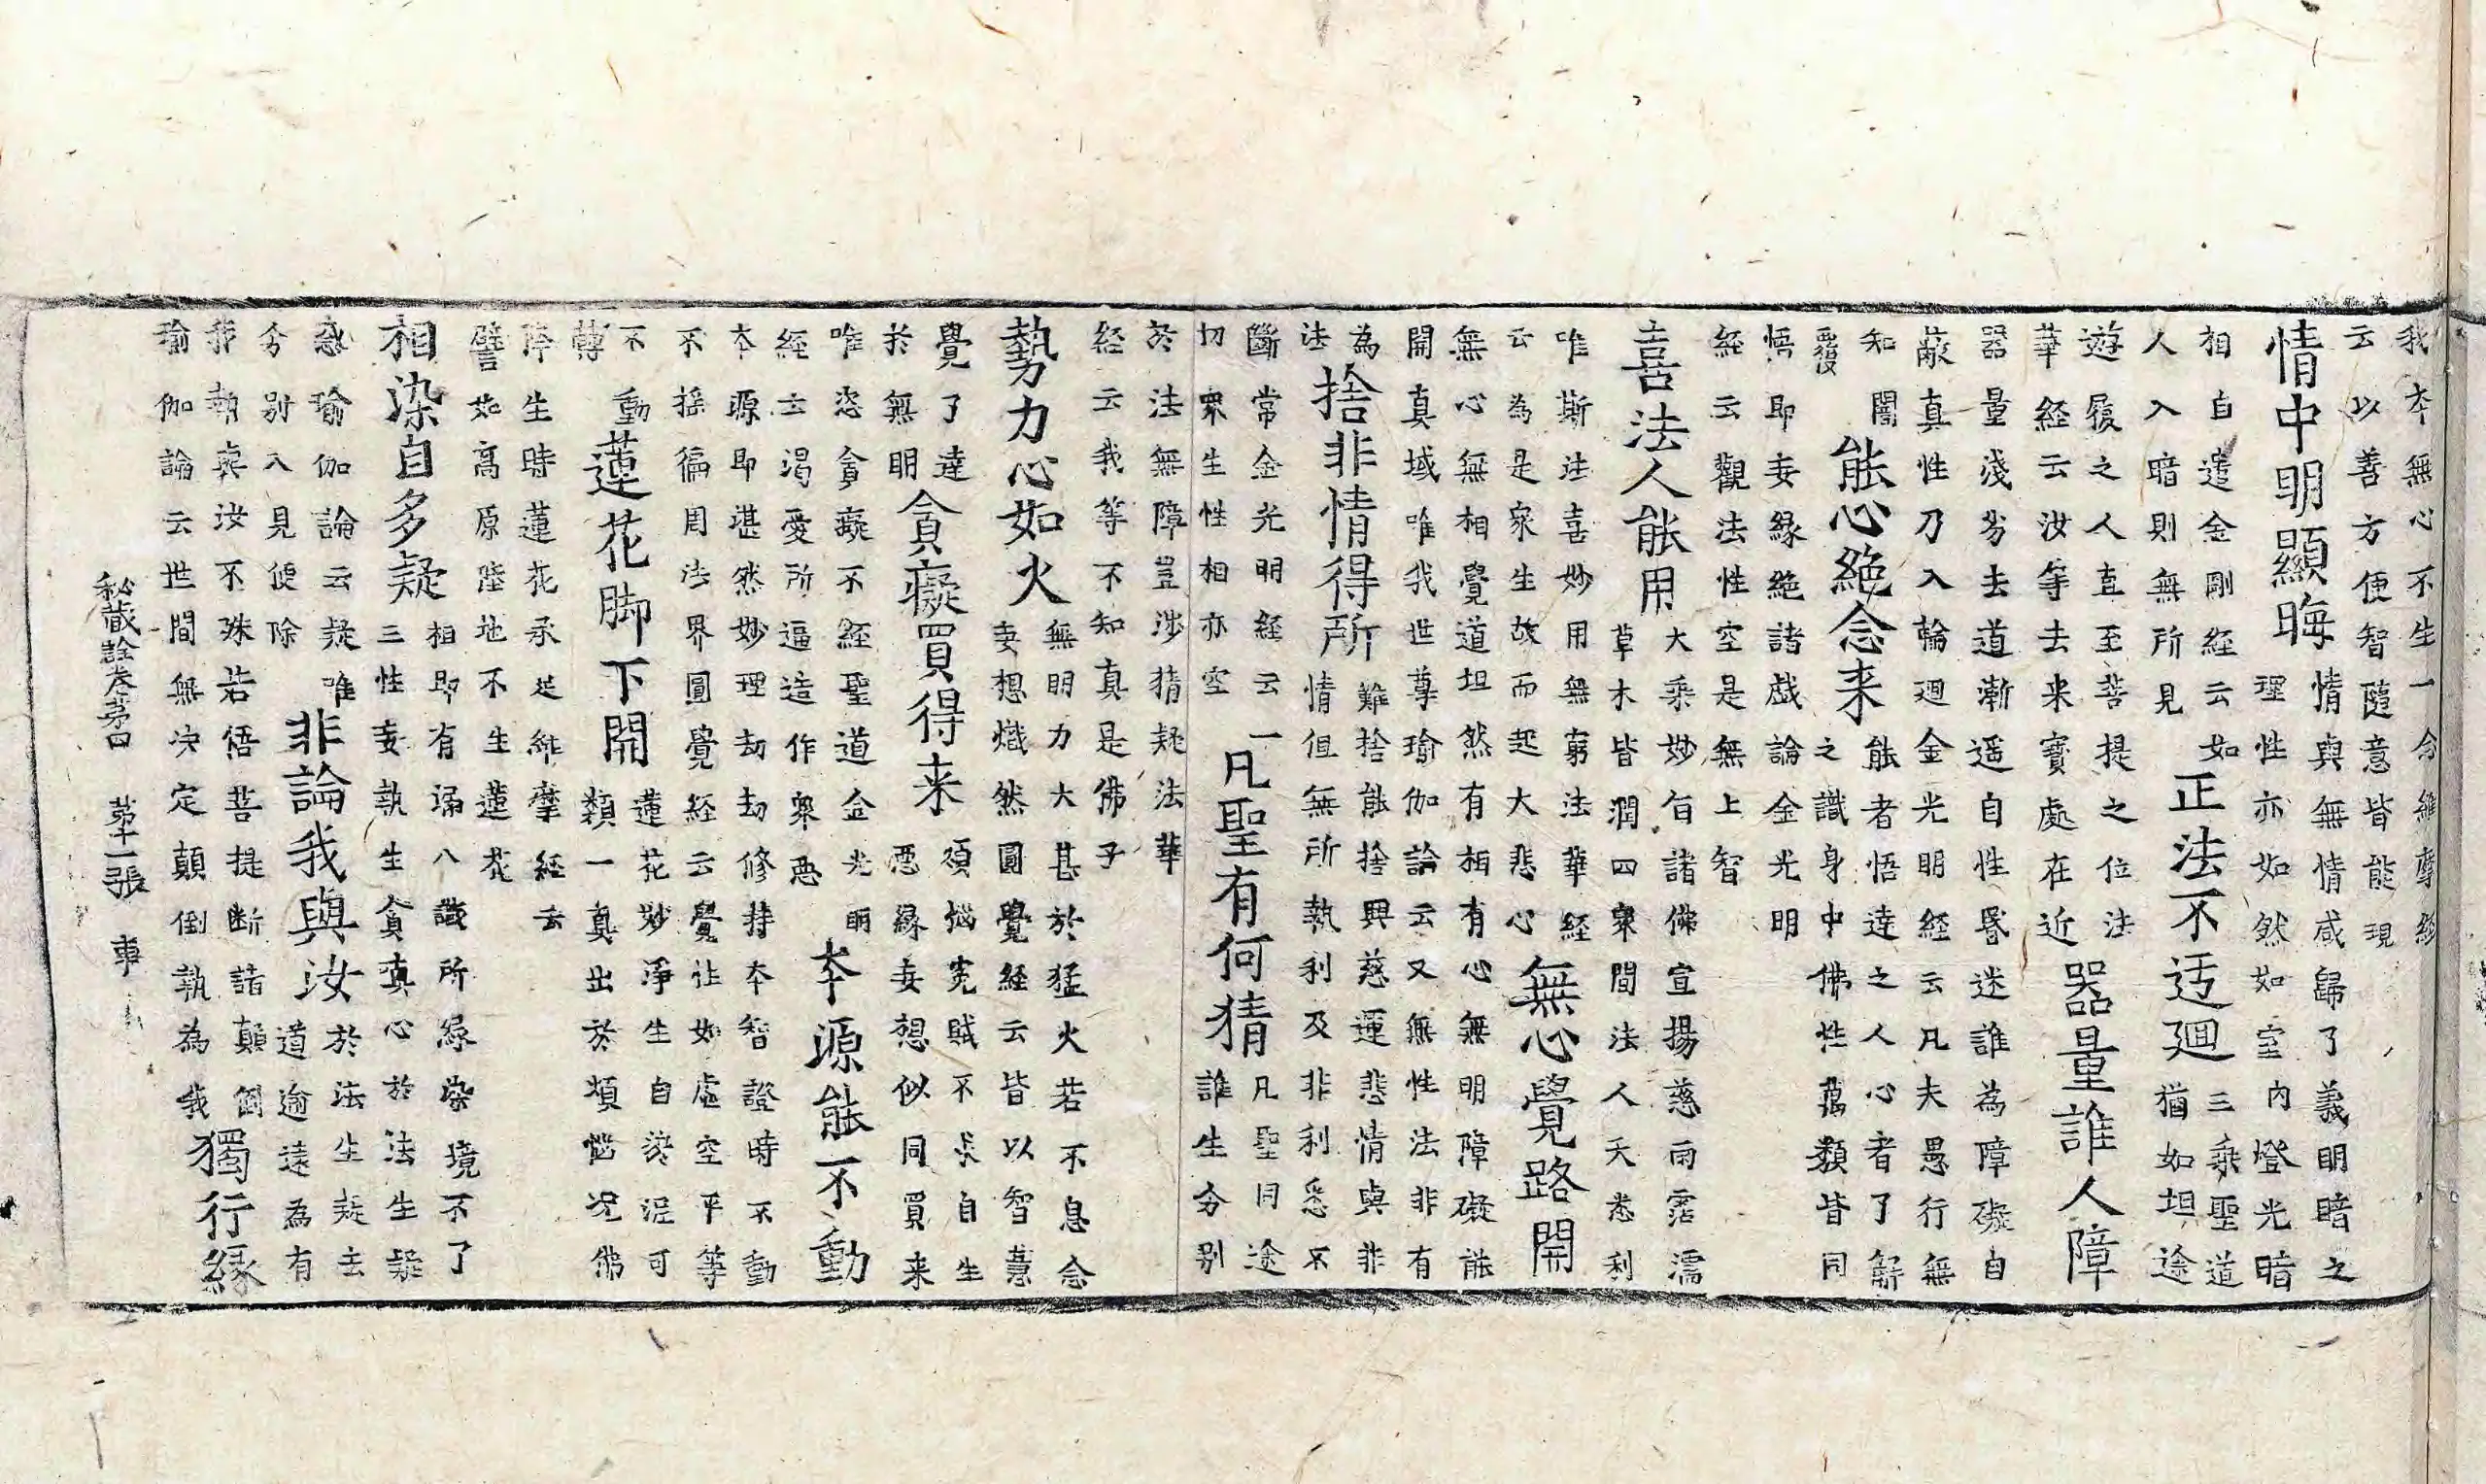 我本無心不生一念維摩經
云以善方便智隨意皆能現
情中明顯晦
情與無情咸歸了義明暗之
理性亦如然如室內燈光暗
相自遣金剛經云如
人入暗則無所見
正法不迃迴
三乘聖道
猶如坦途
遊履之人直至菩提之位法
華経云汝等去来寶處在近
器量誰人障
器量淺劣去道漸遥自性昏迷誰為障礙自
蔽真性刀入輪迴金光明経云凡夫愚行無
知闇
覆
能心絶念来
能者悟達之人心者了解
之識身中佛性萬類皆同
悟即妄緣絶諸戲論金光明
経云觀法性空是無上智
喜法人能用
大乘妙旨諸佛宣揚慈雨霑濡
草木皆潤四衆間法人天悉利
唯斯法喜妙用無窮法華経
云為是衆生故而起大悲心
無心覺路開
無心無相覺道坦然有相有心無明障礙能
開真域唯我世尊瑜伽論云又無性法非有
為
法
捨非情得所
難捨能捨興慈運悲情與非
情但無所執利及非利悉不
斷常金光明経云一
切衆生性相亦空
凡聖有何猜
凡聖同途
誰生分别
於法無障豈涉猜疑法華
経云我等不知真是佛子
勢力心如火
無明力大甚於猛火若不息念
妄想熾然圓覺経云皆以智慧
覺了達
於無明
貪癡買得来
煩惱寃賊不求自生
惡緣妄想似同買来
唯恣貪癡不経聖道金光明
經云渴愛所逼造作衆惡
本源能不動
本源即湛然妙理劫劫修持本智證時不動
不摇徧周法界圓覺経云覺性如虚空平等
不動
轉
蓮花脚下開
蓮花妙淨生自淤泥可
類一真出於煩惱况佛
降生時蓮花承足維摩経云
譬如高原陸地不生蓮花
相染自多疑
相即有漏八識所緣染境不了
三性妄執生貪真心於法生疑
惑瑜伽論云疑唯
分别入見便除
非論我與汝
於法生疑去
道逾遠為有
我執與汝不殊若悟菩提断諸顛倒
瑜伽論云世間無决定顛倒執為我
獨行緣
秘藏詮卷第四 第十一張 車